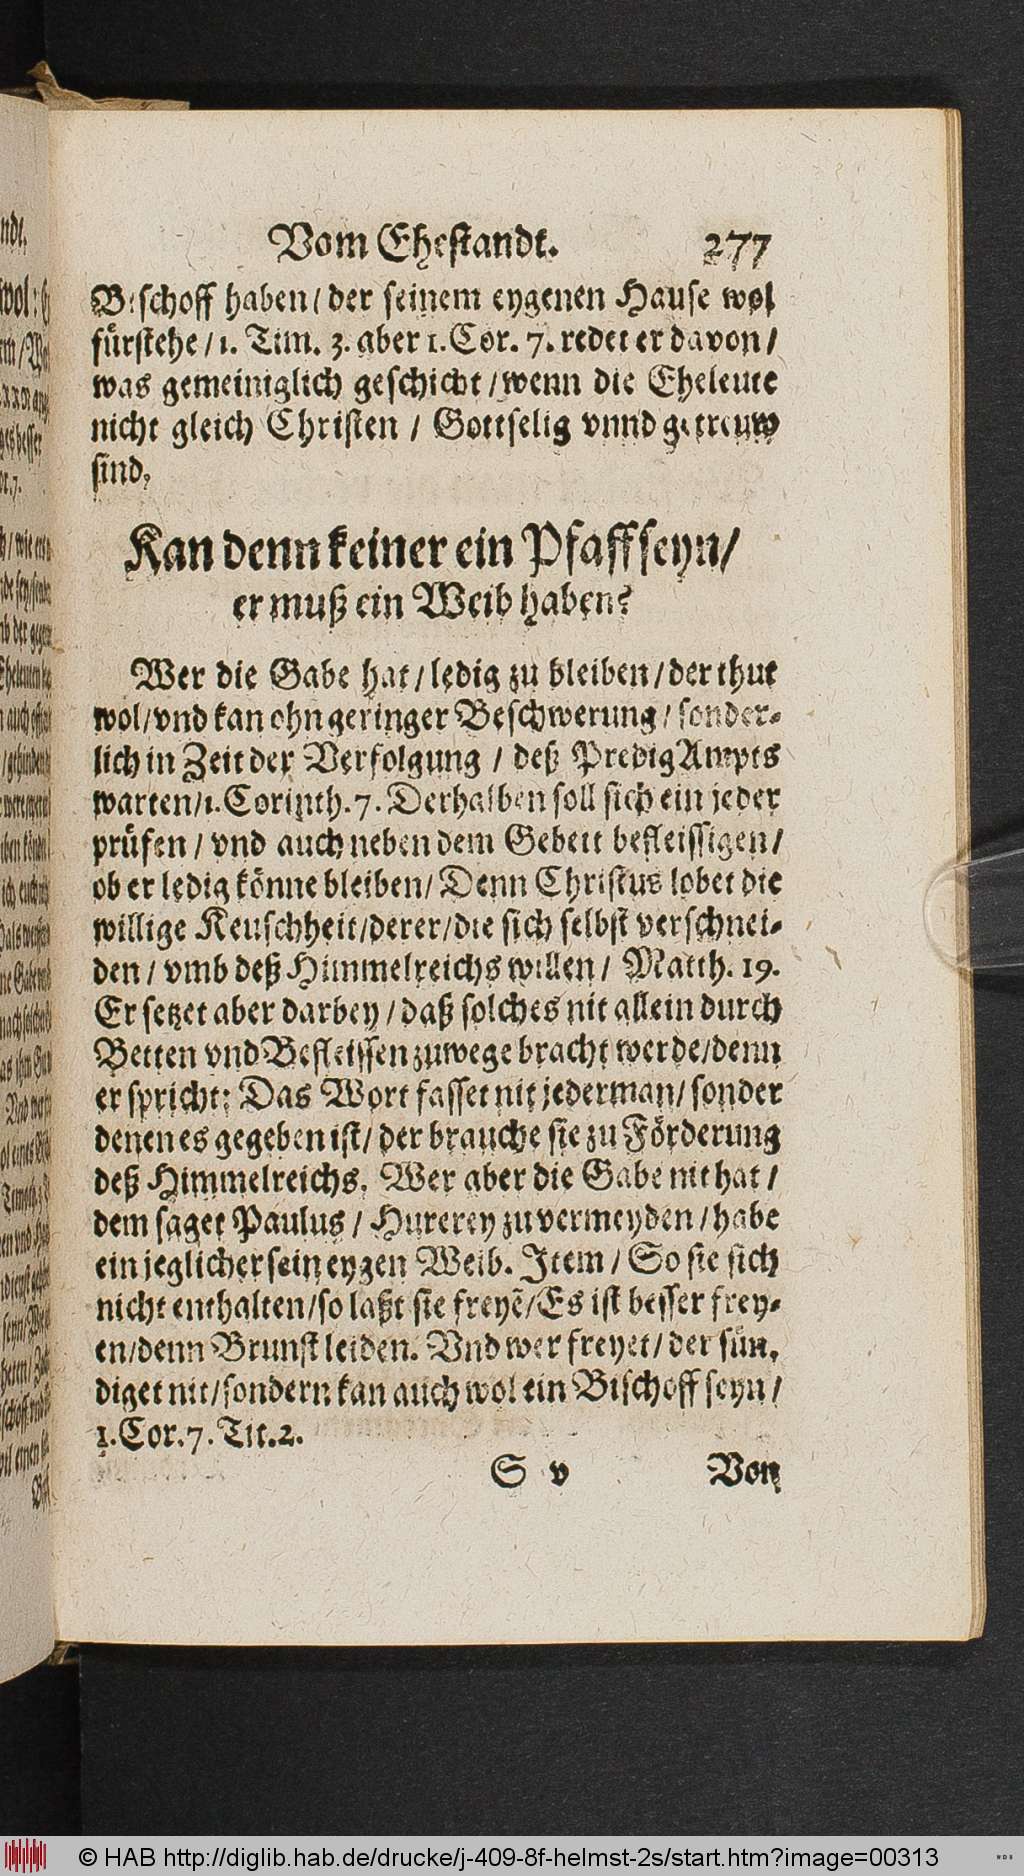 Vom Ehestandt. 277
Bischoff haben / der seinem eygenen Hause wol
fürstehe / 1. Tim. 3. aber 1. Cor. 7. redet er davon /
was gemeiniglich geschicht / wenn die Eheleute
nicht gleich Christen / Gottselig vnnd getreuw
sind.
Kan denn keiner ein Pfaff seyn /
er muß ein Weib haben?
Wer die Gabe hat / ledig zu bleiben / der thut
wol / vnd kan ohn geringer Beschwerung / sonder-
lich in Zeit der Verfolgung / deß Predig Ampts
warten / 1. Corinth. 7. Derhalben soll sich ein jeder
prüfen / vnd auch neben dem Gebett befleissigen /
ob er ledig könne bleiben / Denn Christus lobet die
willige Keuschheit / derer / die sich selbst verschnei-
den / vmb deß Himmelreichs willen / Matth. 19.
Er setzet aber darbey / daß solches nit allein durch
Betten vnd Befleissen zuwege bracht werde / denn
er spricht: Das Wort fasset nit jederman / sonder
denen es gegeben ist / der brauche sie zu Förderung
deß Himmelreichs. Wer aber die Gabe nit hat /
dem saget Paulus / Hurerey zu vermeyden / habe
ein jeglicher sein eygen Weib. Item / So sie sich
nicht enthalten / so laßt sie freyẽ / Es ist besser frey-
en / denn Brunst leiden. Vnd wer freyet / der sün-
diget nit / sondern kan auch wol ein Bischoff seyn /
1. Cor. 7. Tit. 2.
S v Von
© HAB http://diglib.hab.de/drucke/j-409-8f-helmst-2s/start.htm?image=00313